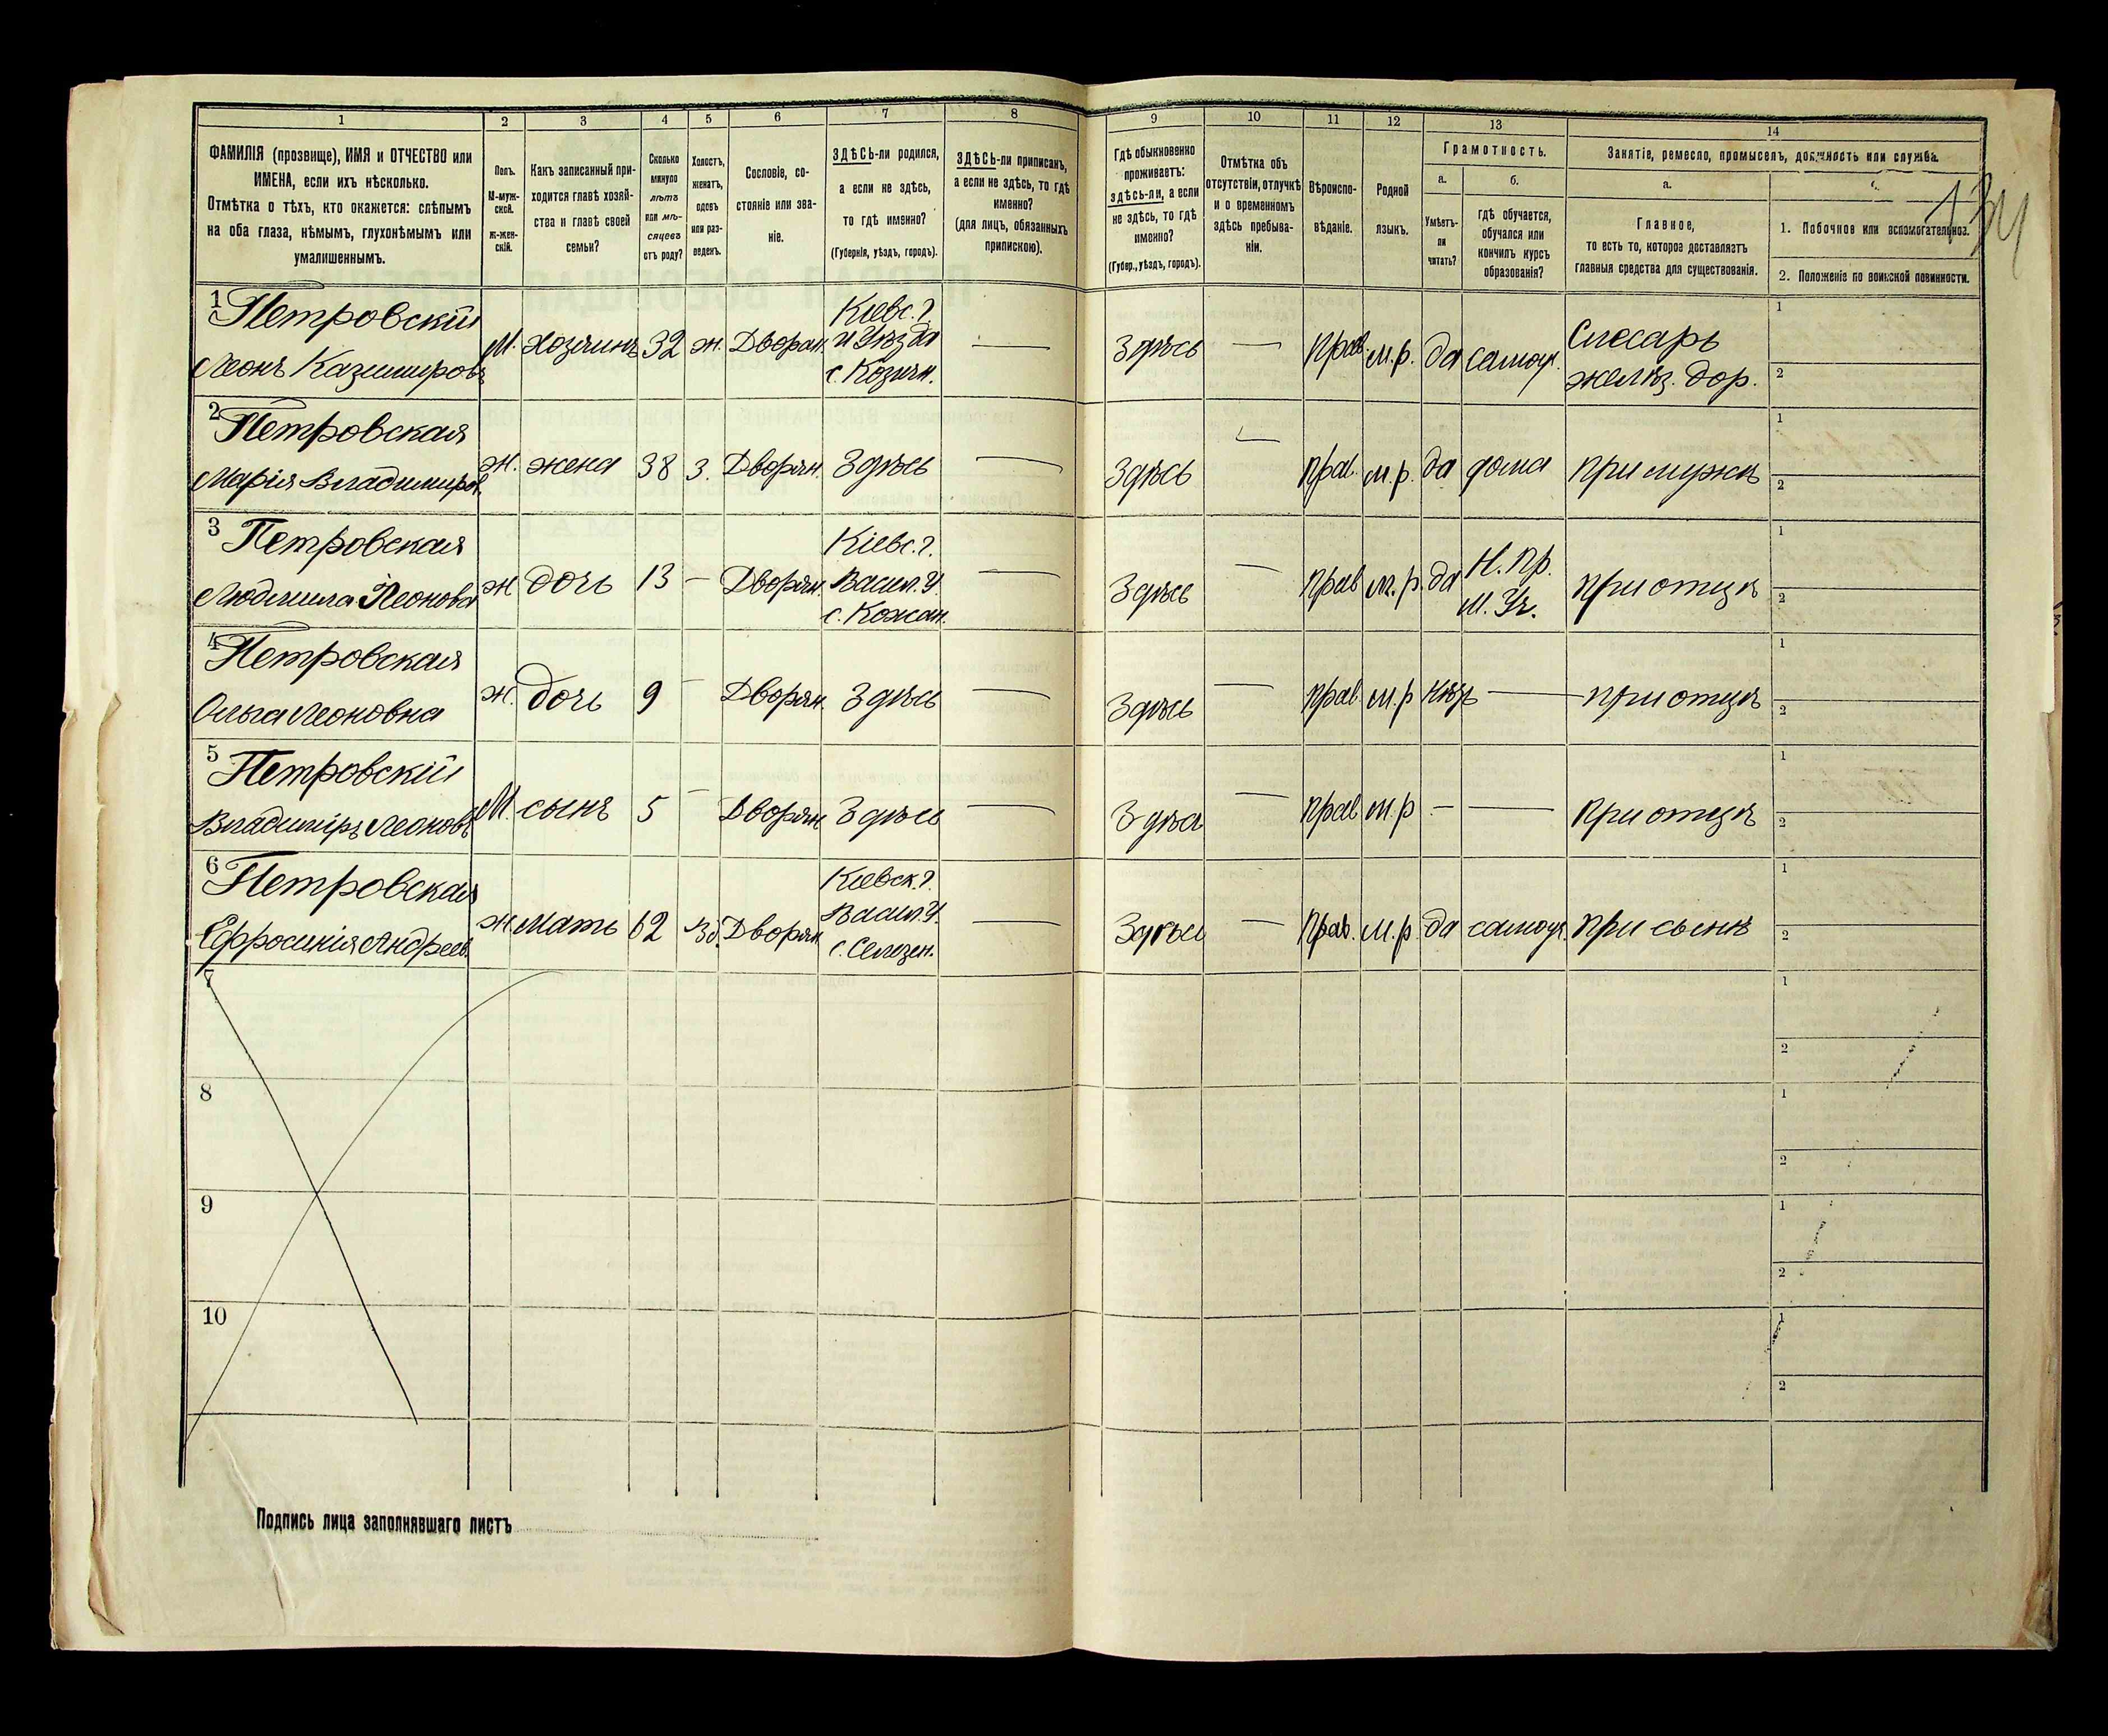 1 2 3 4 5 6 7 8 9 10 11 12 13 14
ФАМИЛІЯ (прозвище), ИМЯ и ОТЧЕСТВО или
ИМЕНА, если ихъ нѣсколько.
Отмѣтка о тѣхъ, кто окажется: слѣпымъ
на оба глаза, нѣмымъ, глухонѣмымъ или
умалишеннымъ.
Полъ.
М-муж-
ской.
ж-жен-
скій.
Какъ записанный при-
ходится главѣ хозяй-
ства и главѣ своей
семьи?
Сколько
минуло
лѣтъ
или мѣ-
сяцевъ
отъ роду?
Холостъ,
женатъ,
вдовъ
или раз-
веденъ.
Сословіе, со-
стояніе или зва-
ніе.
ЗДѢСЬ-ли родился,
а если не здѣсь,
то гдѣ именно?
(Губернія, уѣздъ, городъ).
ЗДѢСЬ-ли приписанъ,
а если не здѣсь, то гдѣ
именно?
(для лицъ, обязанныхъ
припискою).
Гдѣ обыкновенно
проживаетъ:
здѣсь-ли, а если
не здѣсь, то гдѣ
именно?
(Губер., уѣздъ, городъ).
Отмѣтка объ
отсутствіи, отлучкѣ
и о временномъ
здѣсь пребыва-
ніи.
Вѣроиспо-
вѣданіе.
Родной
языкъ.
Грамотность.
а.
Умѣетъ-
ли
читать?
б.
гдѣ обучается,
обучался или
кончилъ курсъ
образованія?
Занятіе, ремесло, промыселъ, должность или служба.
а.
Главное,
то есть то, которое доставляетъ
главныя средства для существованія.
1. Побочное или вспомогательное.
2. Положеніе по воинской повинности.
134
1 Петровскій
Леонъ Казимировъ
М. Хозяинъ 32 ж. Дворян.
Кіевс. г.
и Уѣзда
с. Козич.
— Здѣсь — Прав. м.р. да самоуч.
Слесарь
желѣз. дор.
1
2
2 Петровская
Марія Владиміров.
ж. жена 38 з. Дворян. Здѣсь — Здѣсь — Прав. м.р. да дома при мужѣ
1
2
3 Петровская
Людмила Леоновна
ж дочь 13 — Дворян.
Кіевс. г.
Васил. У.
с. Кожан.
— Здѣсь — Прав м.р. да
Н. Пр.
М. Уч.
при отцѣ
1
2
4 Петровская
Ольга Леоновна
ж. дочь 9 — Дворян. Здѣсь — Здѣсь — Прав. м.р нѣтъ — при отцѣ
1
2
5 Петровскій
Владиміръ Леоновъ
М. сынъ 5 — Дворян Здѣсь — Здѣсь — Прав м.р — — при отцѣ
1
2
6 Петровская
Ефросинія Андреев.
ж мать 62 Дворян.
Кіевск. г.
Васил. У.
с. Селезен.
— Здѣсь — Прав. м.р. да самоуч. при сынѣ
1
2
7
1
2
8
1
2
9
1
2
10
1
2
Подпись лица заполнявшаго листъ